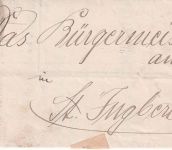 Das Bürgermeis
an
in
St. Ingber